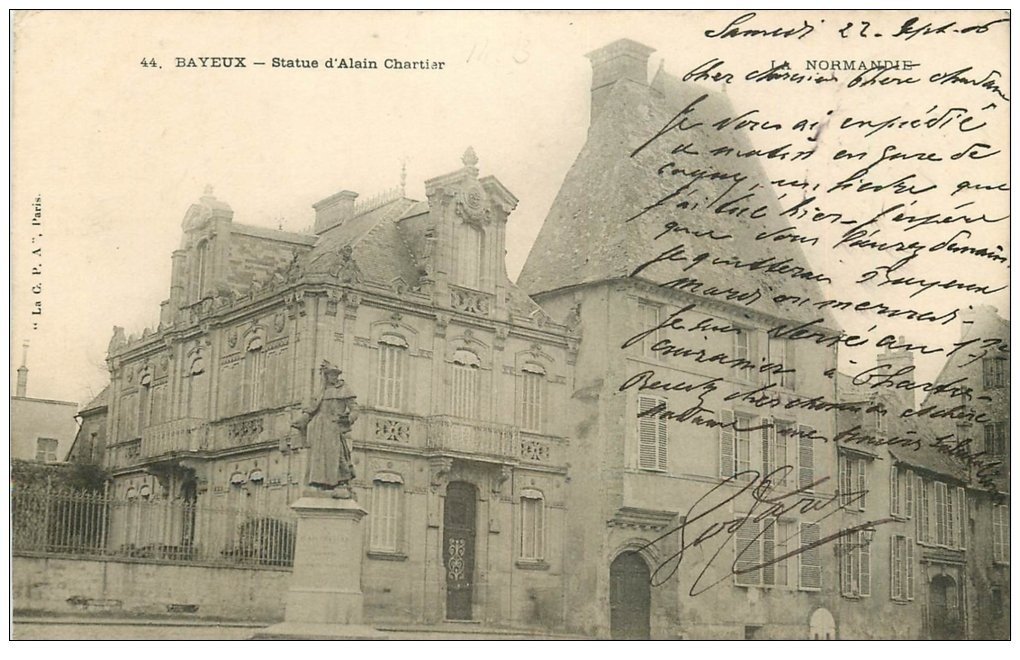 44. BAYEUX — Statue d'Alain Chartier
LA NORMANDIE
" La C. P. A ", Paris.
Samedi 22 - Sept - 06
Cher Monsieur Chère Madame
Je vous ai expédié
ce matin en gare de
que
j'ai tué hier - J'espère
que vous l'aurez demain.
Je quitterai Bayeux
Mardi ou mercredi -
Je suis versé au 13e
cuirassier à Chartres -
Recevez cher Monsieur chère
Madame mes